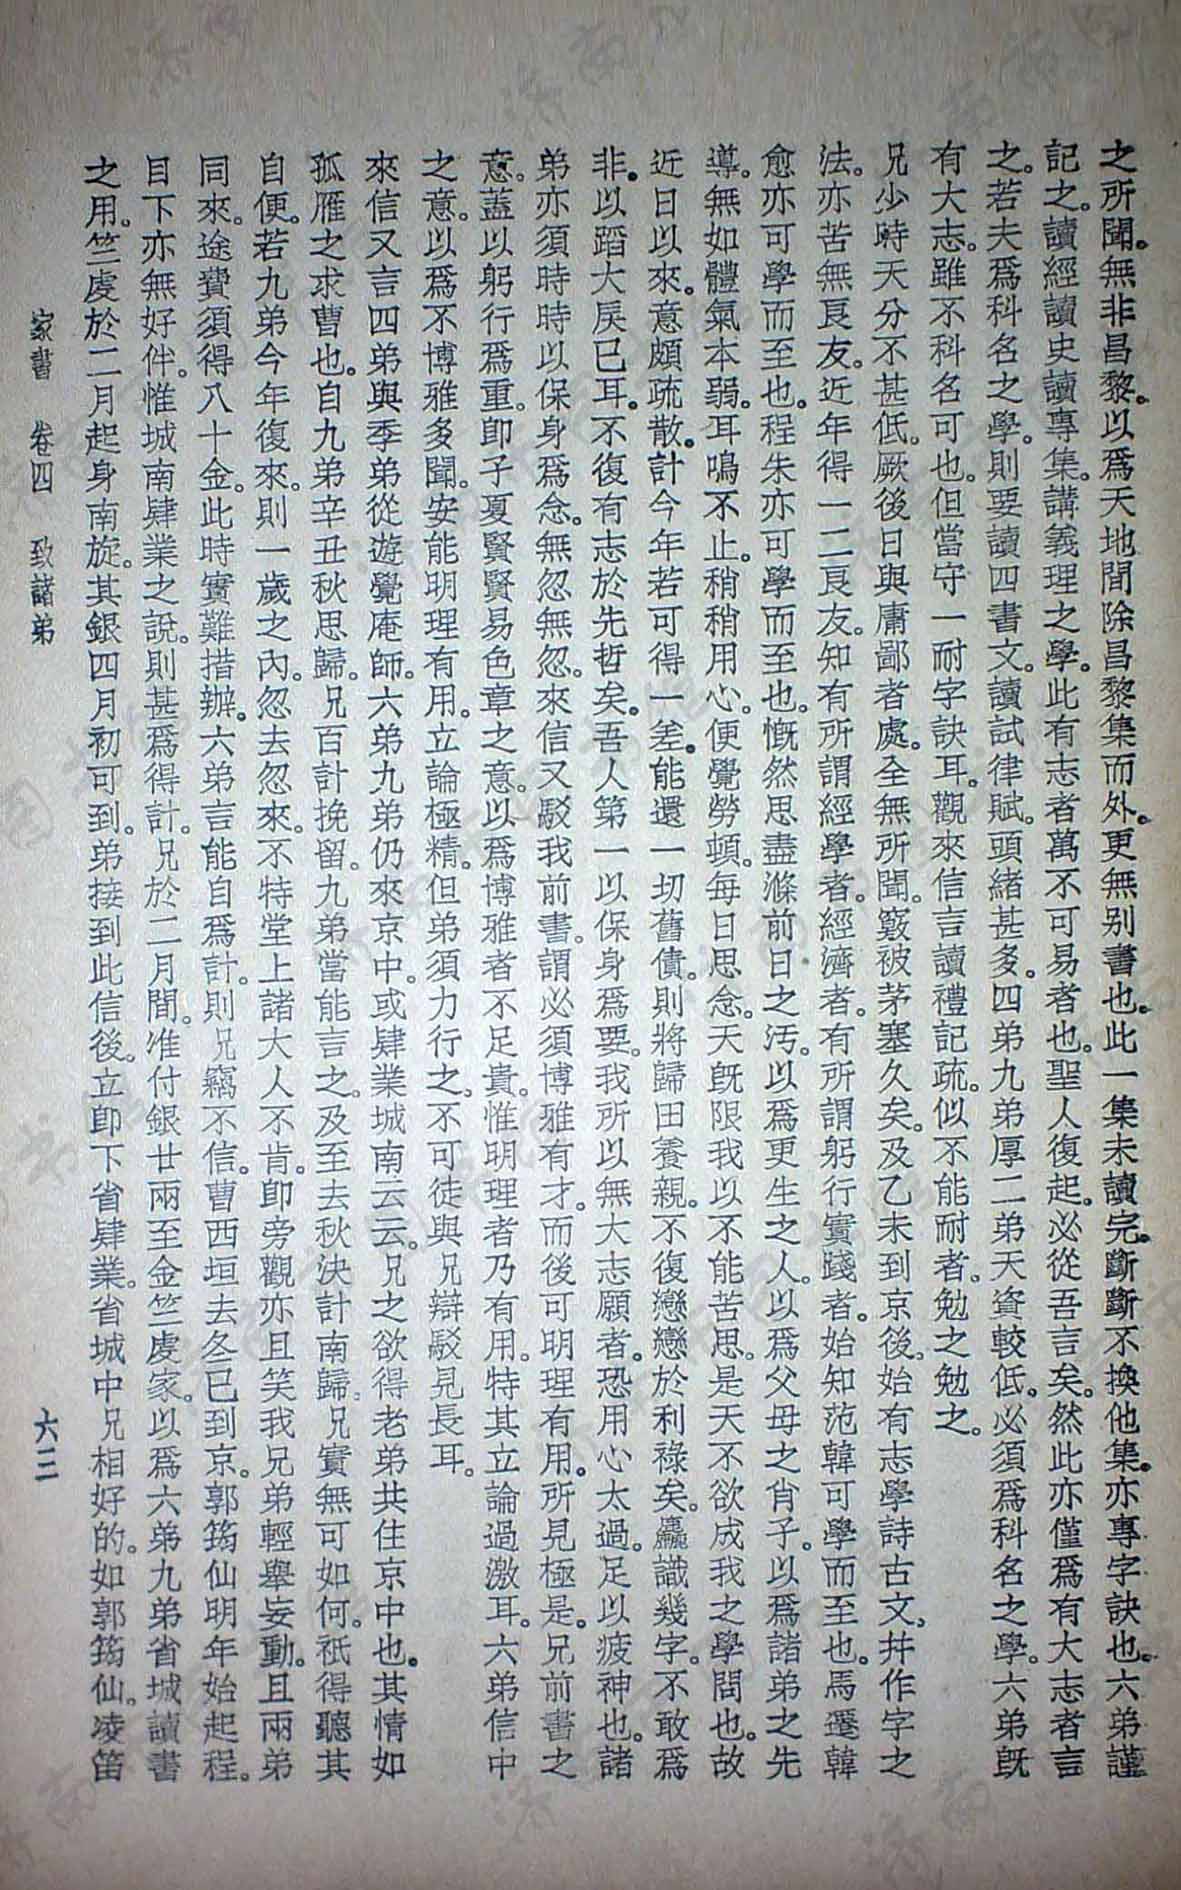 之所聞。無非昌黎。以爲天地間除昌黎集而外。更無別書也。此一集未讀完。斷斷不換他集。亦專字訣也。六弟謹
記之。讀經讀史讀專集。講義理之學。此有志者萬不可易者也。聖人復起。必從吾言矣。然此亦僅爲有大志者言
之。若夫爲科名之學。則要讀四書文。讀試律賦。頭緒甚多。四弟九弟厚二弟天資較低。必須爲科名之學。六弟既
有大志。雖不科名可也。但當守一耐字訣耳。觀來信言讀禮記疏。似不能耐者。勉之勉之。
兄少時天分不甚低。厥後日與庸鄙者處。全無所聞。竅被茅塞久矣。及乙未到京後。始有志學詩古文。幷作字之
法。亦苦無良友。近年得一二良友。知有所謂經學者。經濟者。有所謂躬行實踐者。始知范韓可學而至也。馬遷韓
愈亦可學而至也。程朱亦可學而至也。慨然思盡滌前日之汚。以爲更生之人。以爲父母之肖子。以爲諸弟之先
導。無如體氣本弱。耳鳴不止。稍稍用心。便覺勞頓。每日思念。天既限我以不能苦思。是天不欲成我之學問也。故
近日以來。意頗疏散。計今年若可得一差。能還一切舊債。則將歸田養親。不復戀戀於利祿矣。麤識幾字。不敢爲
非。以蹈大戾已耳。不復有志於先哲矣。吾人第一以保身爲要。我所以無大志願者。恐用心太過。足以疲神也。諸
弟亦須時時以保身爲念。無忽無忽。來信又駁我前書。謂必須博雅有才。而後可明理有用。所見極是。兄前書之
意。蓋以躬行爲重。卽子夏賢賢易色章之意。以爲博雅者不足貴。惟明理者乃有用。特其立論過激耳。六弟信中
之意。以爲不博雅多聞。安能明理有用。立論極精。但弟須力行之。不可徒與兄辯駁見長耳。
來信又言四弟與季弟從遊覺庵師。六弟九弟仍來京中。或肄業城南云云。兄之欲得老弟共住京中也。其情如
孤雁之求曹也。自九弟辛丑秋思歸。兄百計挽留。九弟當能言之。及至去秋決計南歸。兄實無可如何。祇得聽其
自便。若九弟今年復來。則一歲之內。忽去忽來。不特堂上諸大人不肯。卽旁觀亦且笑我兄弟輕舉妄動。且兩弟
同來。途費須得八十金。此時實難措辦。六弟言能自爲計。則兄竊不信。曹西垣去冬已到京。郭筠仙明年始起程。
目下亦無好伴。惟城南肄業之說。則甚爲得計。兄於二月間。准付銀廿兩至金竺虔家。以爲六弟九弟省城讀書
之用。竺虔於二月起身南旋。其銀四月初可到。弟接到此信後。立卽下省肄業。省城中兄相好的。如郭筠仙。凌笛
家書　卷四　致諸弟
六三